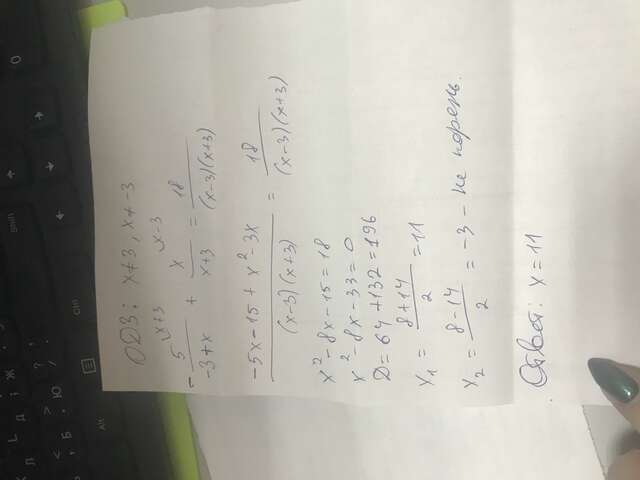 ОДЗ: x≠3, x≠-3
-5/(-3+x) \x+3 + x/(x+3) \x-3 = 18/((x-3)(x+3))
(-5x-15+x²-3x)/((x-3)(x+3)) = 18/((x-3)(x+3))
x²-8x-15=18
x²-8x-33=0
D=64+132=196
x₁ = (8+14)/2 = 11
x₂ = (8-14)/2 = -3 - не корень.
Ответ: x=11